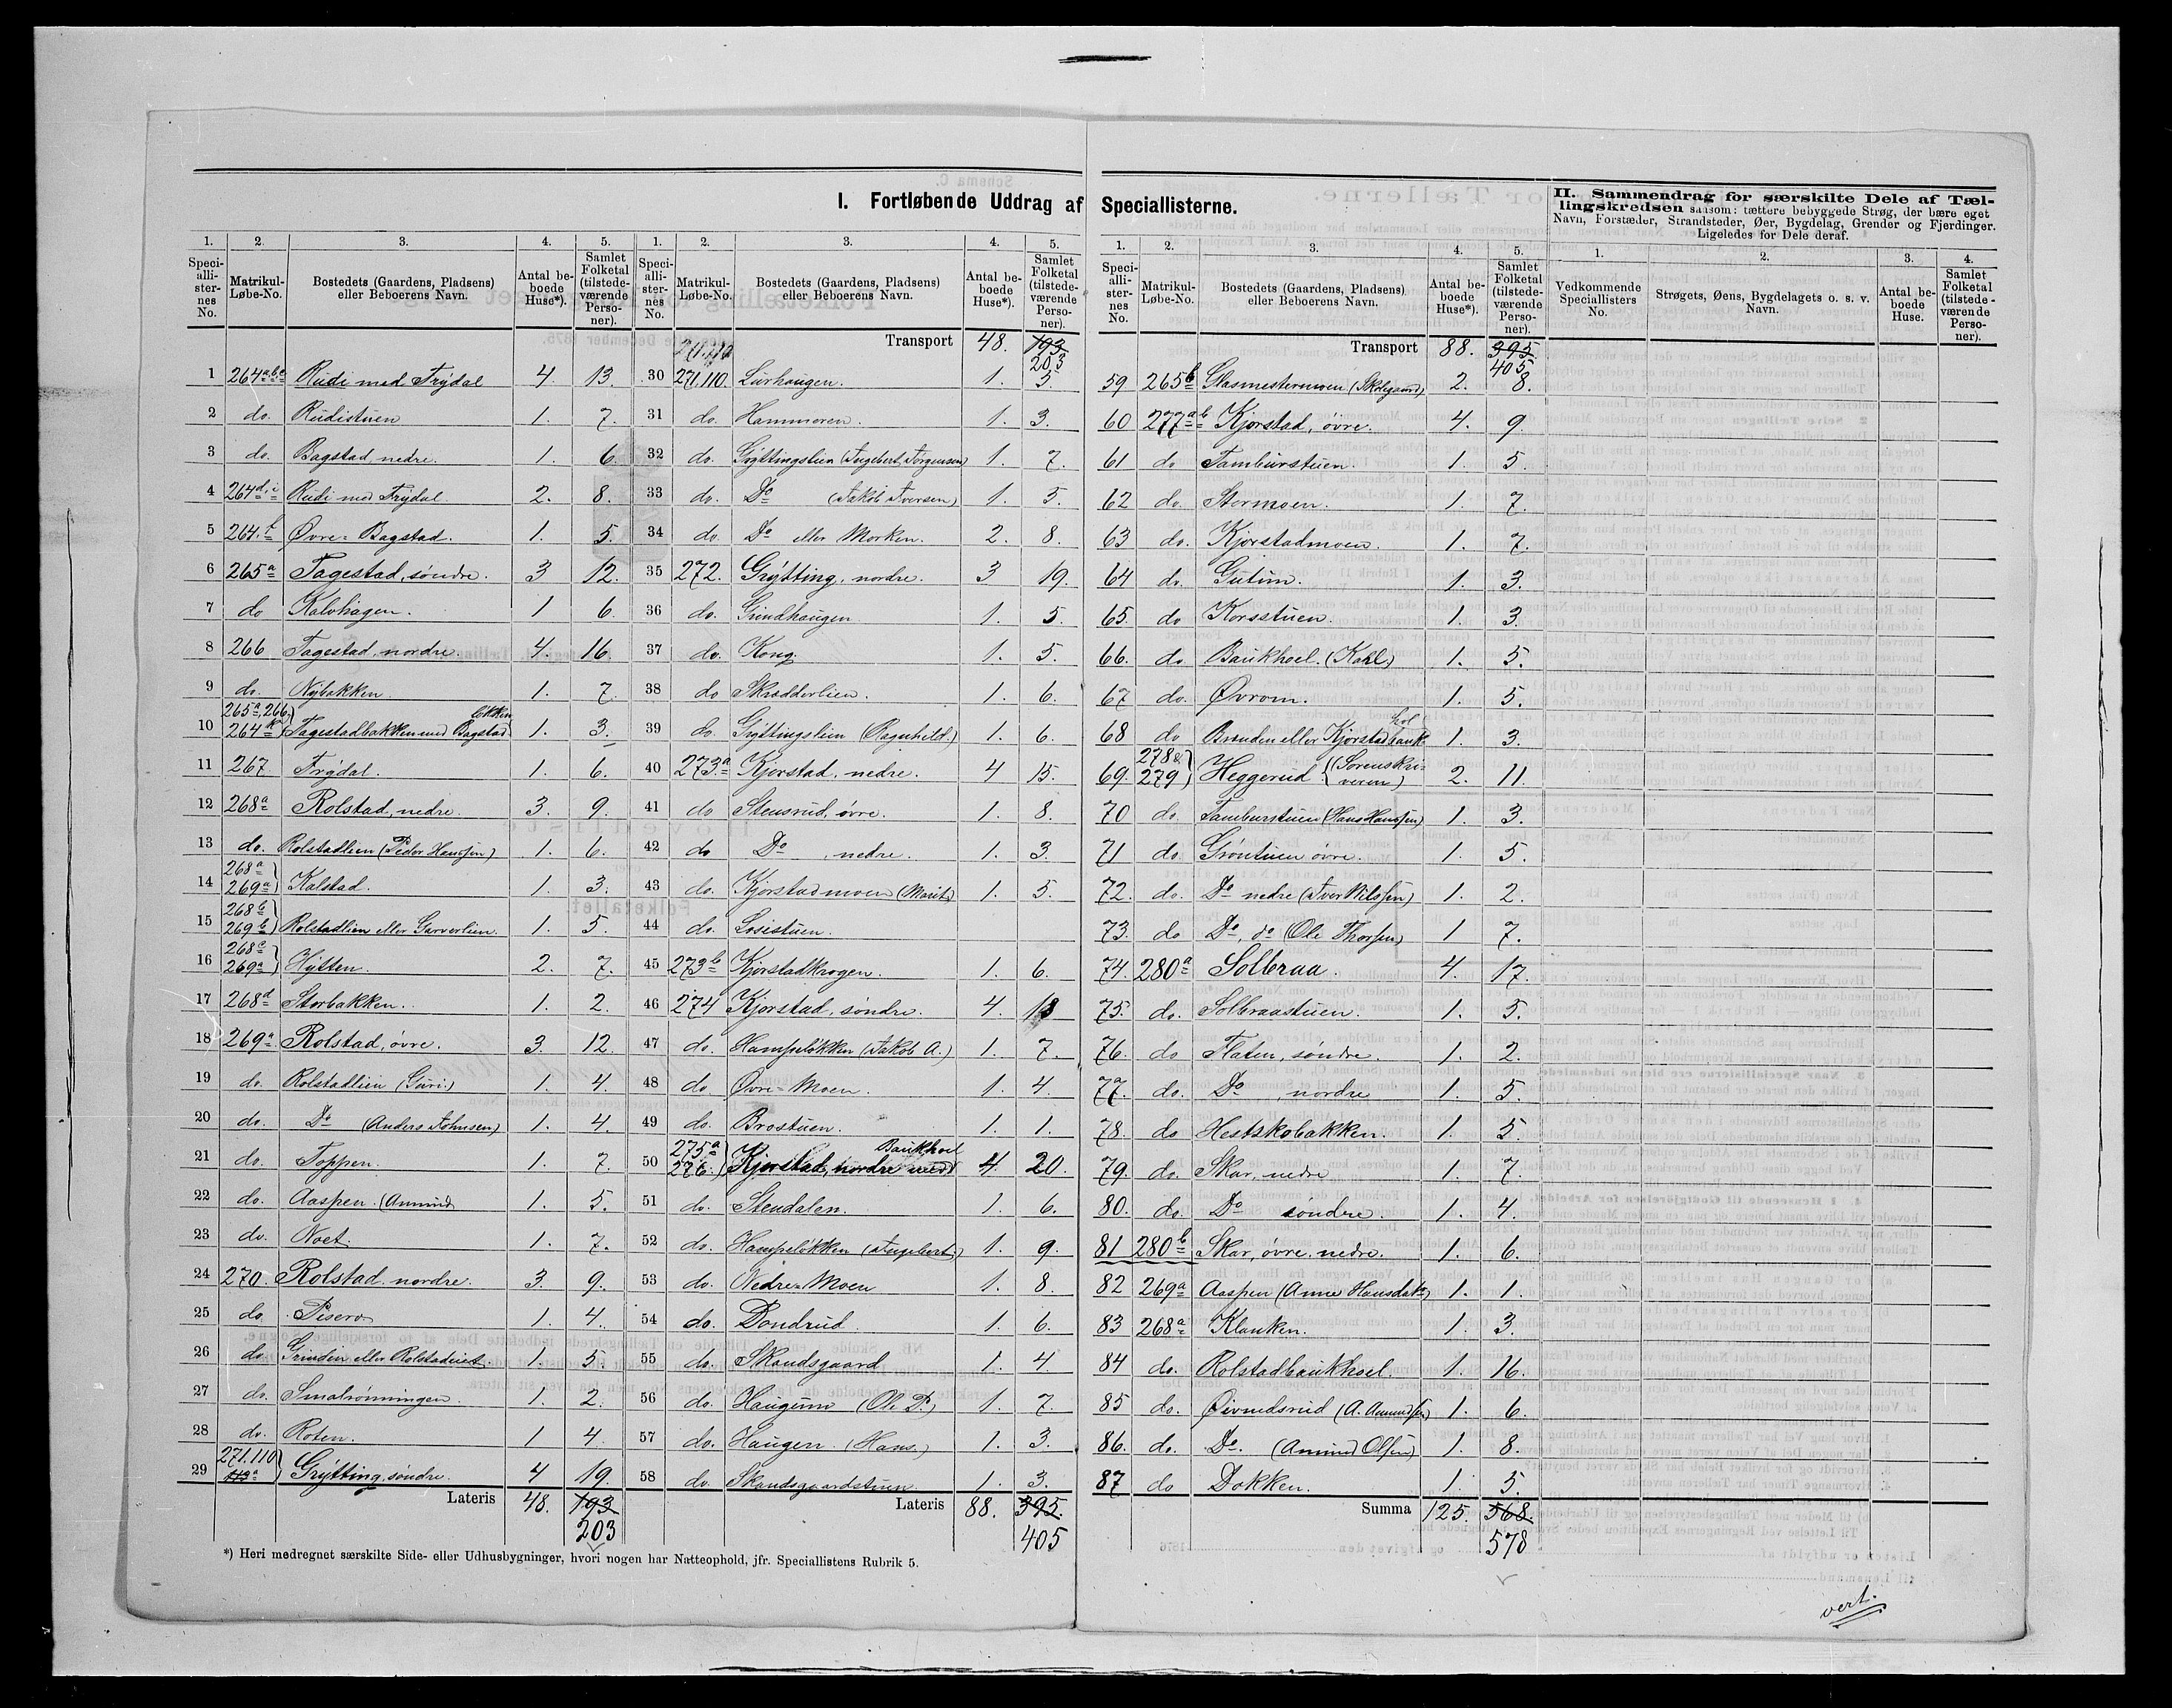 I. Fortløbende Uddrag af Speciallisterne.
II. Sammendrag for særskilte Dele af Tællingskredsen saasom: tættere bebyggede Strøg, der bære eget Navn, Forstæder, Strandsteder, Øer, Bygdelag, Grender og Fjerdinger. Ligeledes for Dele deraf.
1. 2. 3. 4. 5.
Speciallisternes No. Matrikul-Løbe-No. Bostedets (Gaardens, Pladsens) eller Beboerens Navn. Antal beboede Huse*). Samlet Folketal (tilstedeværende Personer).
1 264 a,b,c Rudi med Frydal 4. 13.
2 do. Rudistuen 1. 7.
3 do. Bagstad, nedre. 1. 6.
4 264 d,i Rudi med Frydal 2. 8.
5 264 f Øvre-Bagstad. 1. 5.
6 265 a Tagestad, søndre. 3 12.
7 do Kalvhagen. 1 6.
8 266 Tagestad, nordre. 4. 16.
9 do. Nybakken. 1. 7.
10 265 a, 266. 264 Tagestadbakken med Bagstad 1. 3.
11 267 Frydal. 1. 6.
12 268 a Rolstad, nedre. 3. 9.
13 do. Rolstadlien (Peder Hansen) 1. 6.
14 268 a 269 a Kalstad. 1. 3.
15 268 b 269 b Rolstadlien eller Garverlien. 1. 5.
16 268 c 269 a Hytten. 2. 7.
17 268 d Storbakken. 1. 2.
18 269 a Rolstad, øvre. 3. 12.
19 do. Rolstadlien (Guri) 1. 4.
20 do. Do (Anders Johnsen) 1. 4.
21 do. Toppen. 1. 7.
22 do. Aaspen. (Amund) 1. 5.
23 do. Noet. 1. 7.
24 270. Rolstad nordre. 3. 9.
25 do. Pisero 1. 4.
26 do Grinden eller Rolstadeiet. 1. 5.
27 do. Smalrønningen. 1. 2.
28 do. Roten. 1 4.
29 271.110 113 a Grytting, søndre. 4 19.
Lateris 48. 193 203
Transport 48. 193 203
30 271.110. Lurhaugen. 1. 5.
31 do. Hammoren. 1. 3.
32 do. Gryttingslien (Ingebert Jørgensen) 1. 7.
33 do. Do (Jakob Iversen) 1. 5.
34 do. Do eller Morken. 2. 8.
35 272. Grytting, nordre. 3 19.
36 do. Grindhaugen 1. 5.
37 do. Kong 1. 5.
38 do Skrædderlien. 1. 6.
39 do. Gryttingslien (Ragnhild.) 1. 6.
40 273. a Kjorstad, nedre. 4 15.
41 do Stensrud, øvre. 1. 8.
42 do Do, nedre. 1. 3.
43 do. Kjorstadmoen (Marit) 1. 5.
44 do. Losistuen.
45 273 b Kjorstadkrogen. 1. 6.
46 274 Kjorstad, søndre. 4. 18
47 do. Hampeløkken (Jakob A.) 1. 7.
48 do. Øvre-Moen. 1. 4.
49 do. Brostuen. 1. 1.
50 275 a 276. Kjorstad, nordre med Baukhoel 4. 20.
51 do. Stendalen. 1. 6.
52 do. Hampeløkken (Ingebert.) 1. 9.
53 do. Nedre-Moen 1. 8.
54 do. Dondrud. 1. 6.
55 do. Skandsgaard 1. 4.
56 do. Haugum (Ole P.) 1. 7.
57 do. Haugen (Hans.) 1. 3.
58 do. Skandsgaardstuen 1. 3.
Lateris 88. 395. 405
Transport 88. 395. 405
59 265 b Glasmestermoen (Skolegaard) 2. 8.
60 277 a b Kjorstad, øvre. 4. 9
61 do Tamburstuen. 1. 5.
62 do Stormoen. 1. 7.
63 do. Kjorstadmoen. 1. 7.
64 do. Gutum. 1. 3.
65. do Korsstuen. 1. 3.
66. do Baukhoel. (Kahl) 1. 5.
67 do. Øvrom. 1. 5.
68 do Brænden eller Kjorstadbaukhol 1. 3.
69. 278 & 279 Heggerud (Sorenskriveren) 2. 11.
70 do. Tamburstuen (Hans Hansen) 1. 3.
71 do Grøntuen øvre. 1. 5.
72. do. Do nedre (Iver Nilsen) 1. 2.
73. do Do, do (Ole Thorsen) 1 7.
74. 280 a Solbraa. 4. 17.
75. do. Solbraastuen. 1. 5.
76. do Flaten, søndre. 1. 2.
77. do. Do, nordre 1. 5.
78. do Hestskobakken. 1. 5.
79. do. Skar, nedre 1. 7.
80. do. Do søndre. 1. 4.
81 280 b Skar, øvre nedre. 1. 6.
82 269 a Aaspen (Anne Hansdatr) 1. 1.
83 268 a Klanken. 1. 3.
84 do. Rolstadbaukhoel. 1. 16.
85 do. Øivindsrud (A. Amundsen) 1. 6.
86. do. Do. (Amund Olsen) 1. 8.
87 do Dokken. 1. 5.
Summa 125. 568. 578
1. 2. 3. 4.
Vedkommende Speciallisters No. Strøgets, Øens, Bygdelagets o. s. v. Navn. Antal beboede Huse. Samlet Folketal (tilstedeværende Personer).
*) Heri medregnet særskilte Side- eller Udhusbygninger, hvori nogen har Natteophold, jfr. Speciallistens Rubrik 5.
vert.